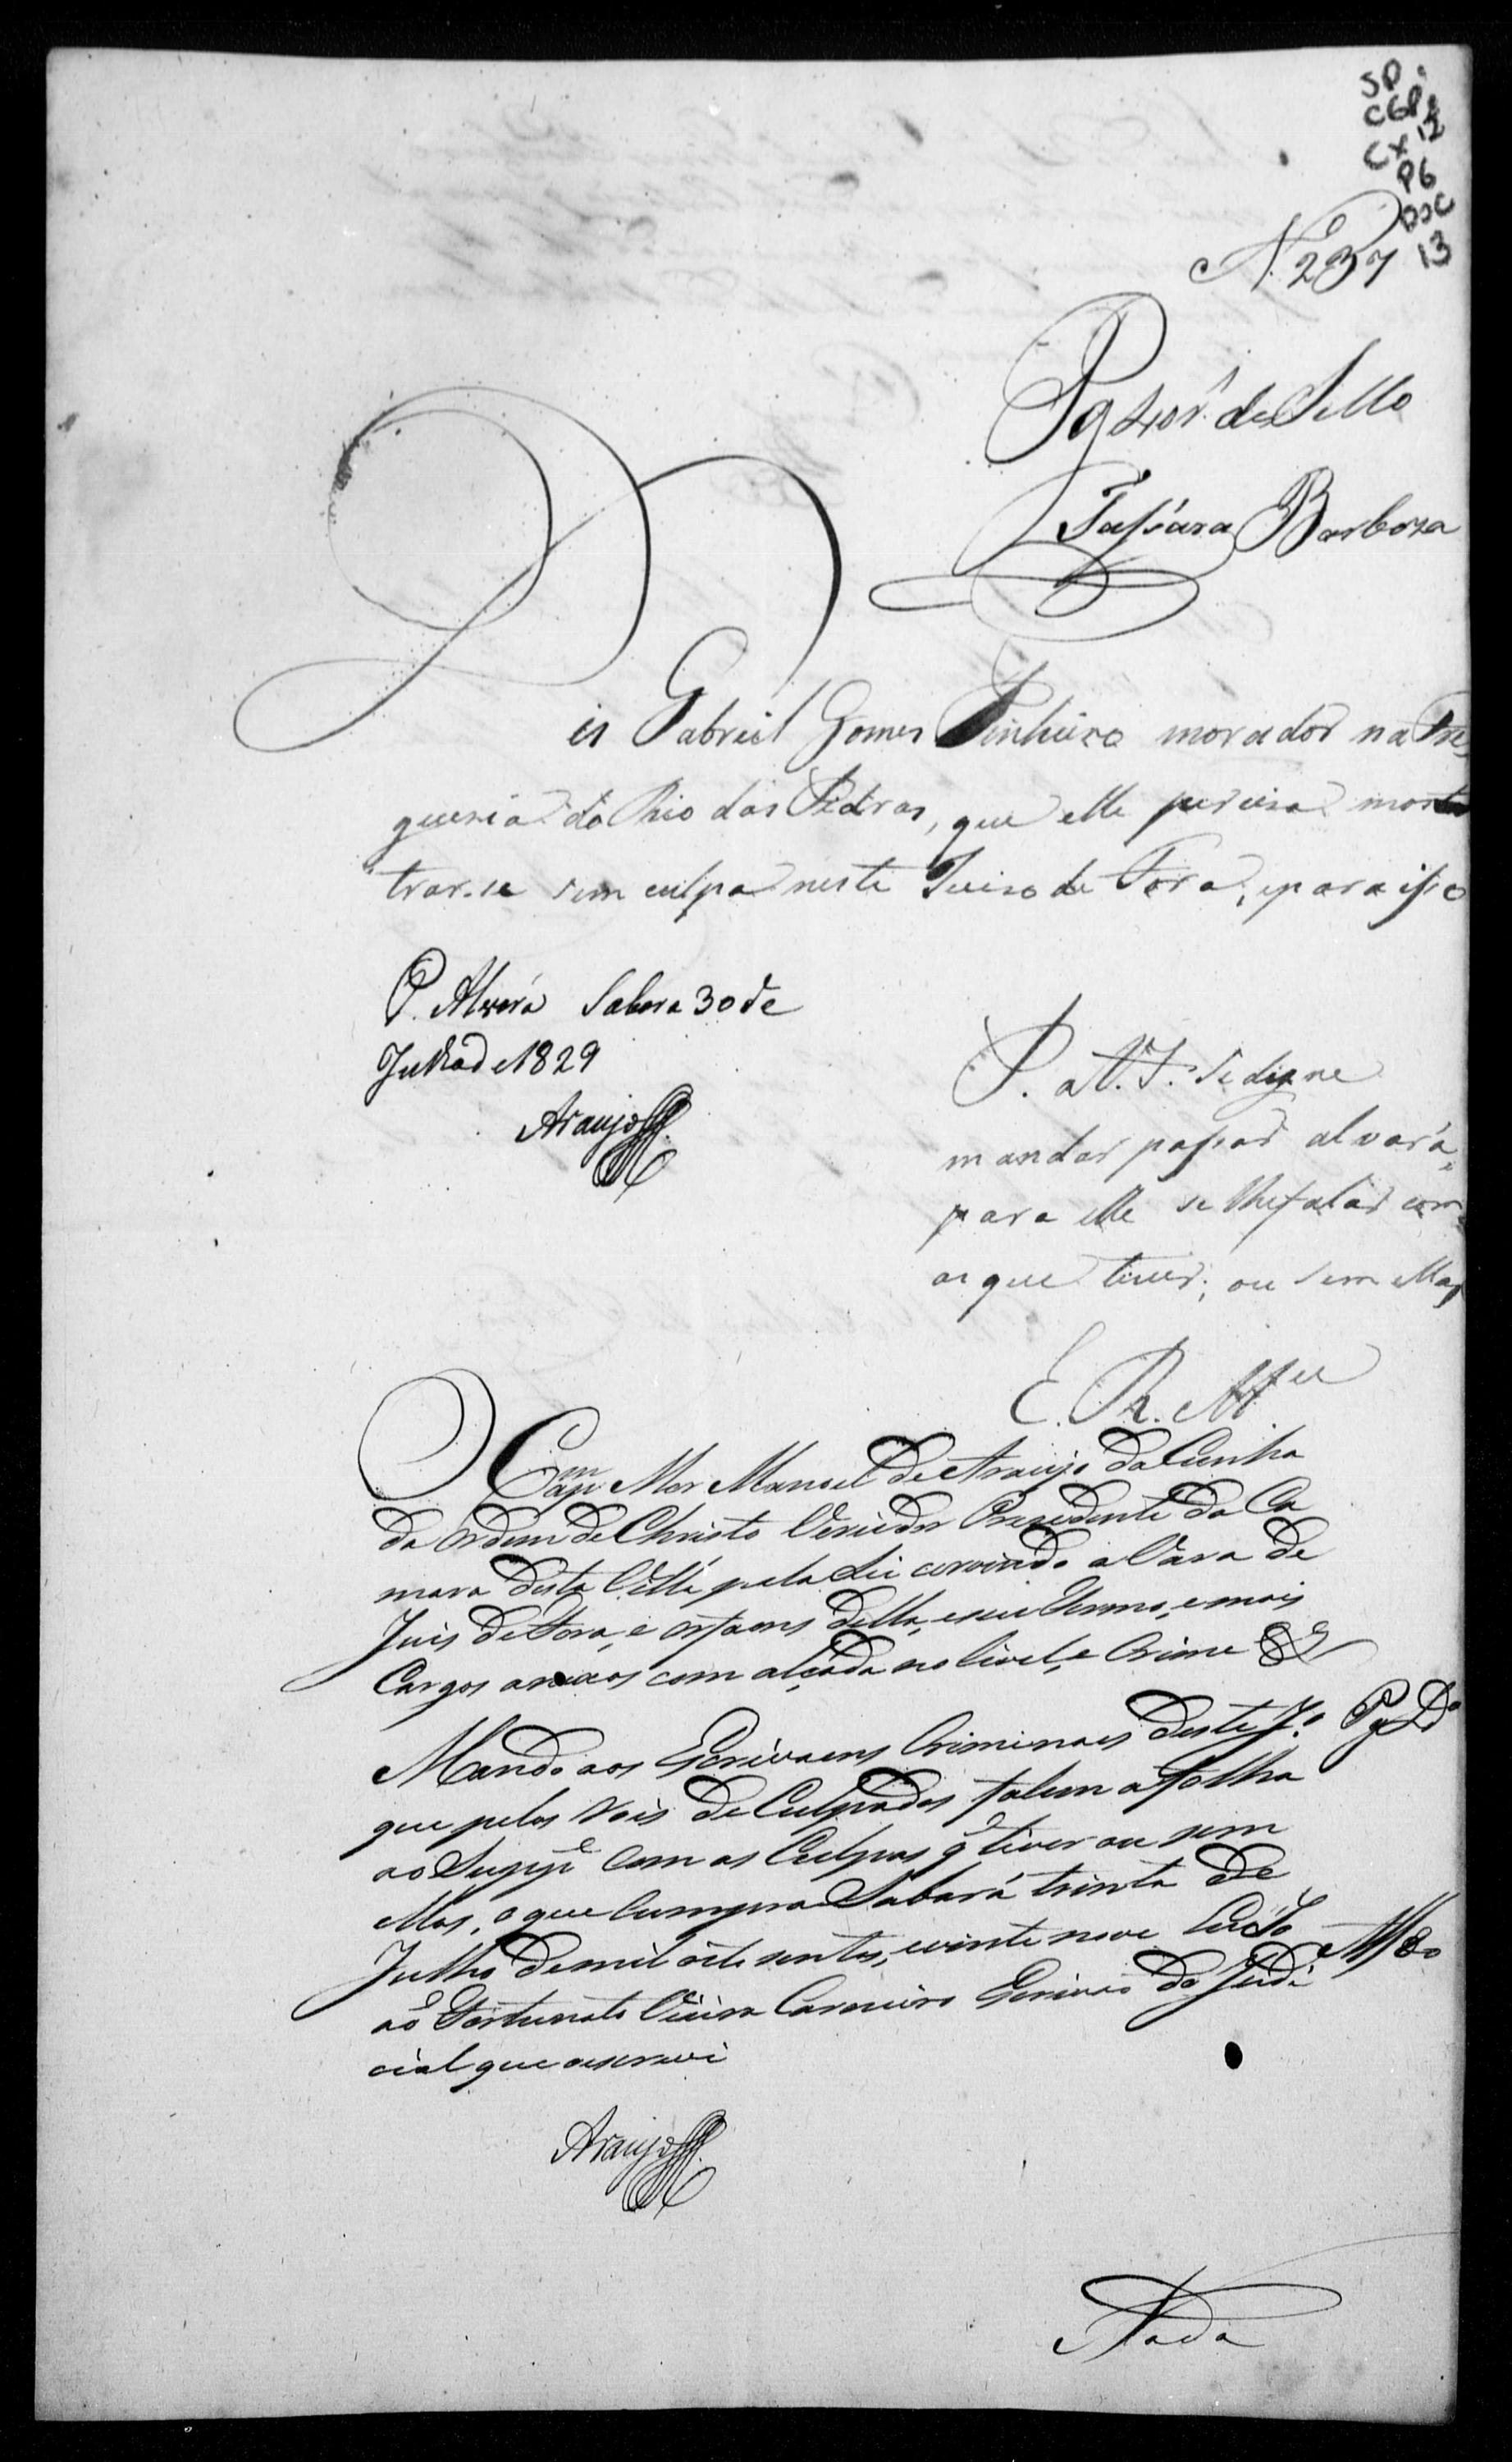 SP.
CGP1
CX 12
P6
DOC
13
N. 237
Pg 40 r.s de Sello
Tassara Barboza
Diz Gabriel Gomes Pinheiro morador na Fre
guesia do Rio das Pedras, que elle percisa mos
trar-se sem culpa neste Juiso de Fora, e para isso
P. Alvará Sabará 30 de
Julho de 1829
Araujo
P. a V. S. se digne
mandar passar alvará,
para elle se lhe falar com
as que tiver; ou sem ellas
E. R. M.ce
O Capm Mor Manoel de Araujo da Cunha
da Ordem de Christo Veriador Prezidente da Ca
mara desta Villa pela Lei cervindo a Vara de
Juis de Fora, e orfaons della, e seu Termo, e mais
Cargos anexos com alçada no Civel, e Crime &
Mando aos Escrivaens Criminaes deste J.o
que pelos Rois de Culpados falem a folha
ao Suppe com as Culpas q' tiver ou sem
ellas, o que cumprao Sabará trinta de
Julho de mil oito sentos, e vinte nove Eu Jo
aõ Fortunato Vieira Carneiro Escrivaõ do Judi
cial que o escrevi
Araujo
Nada